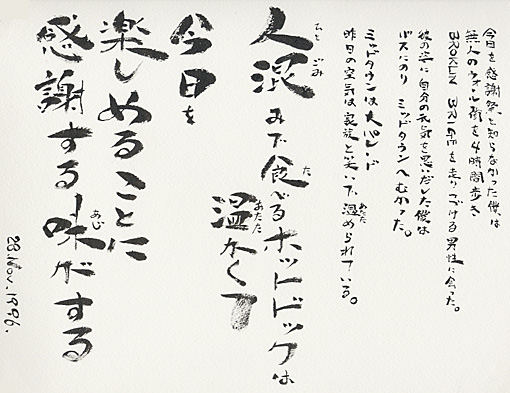 今日を感謝祭と知らなかった僕は
無人のウォール街を4時間歩き
BROKLYN BRIDGEを走りつづける男性に会った。
彼の姿に自分の元気を思いだした僕は
バスにのり ミッドタウンへむかった。
ミッドタウンは大パレード
昨日の空気は家族と笑いで温められている。
人混みで食べるホットドックは
温かくて
今日を
楽しめることに
感謝する味がする
28.Nov.1996.